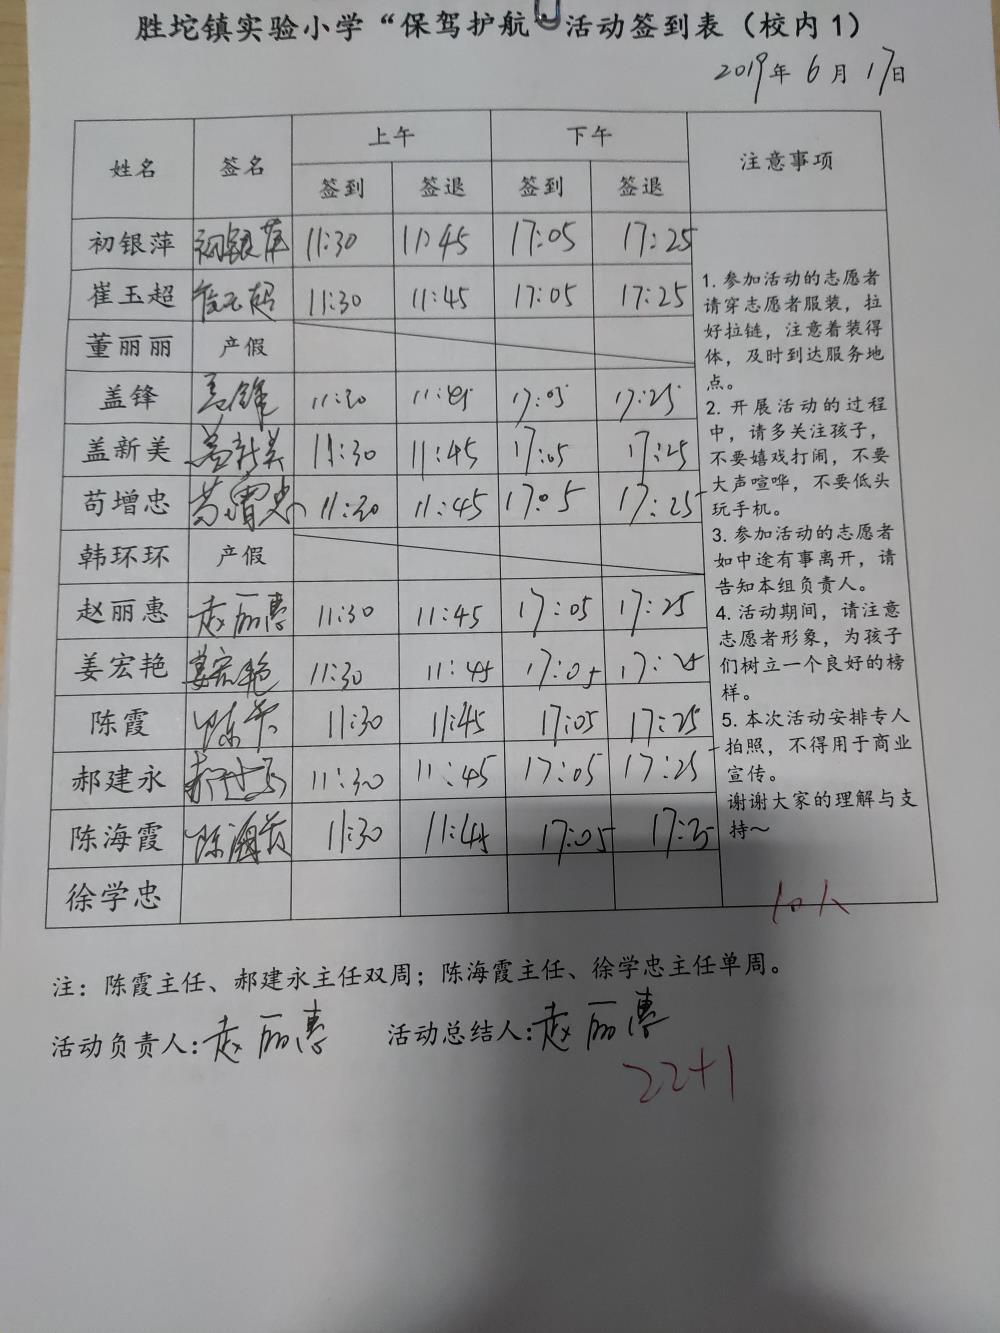 胜坨镇实验小学“保驾护航”活动签到表（校内1）
2019年 6月 17日
姓名 签名 上午 下午 注意事项
签到 签退 签到 签退
初银萍 初银萍 11:30 11:45 17:05 17:25
崔玉超 崔玉超 11:30 11:45 17:05 17:25
董丽丽 产假
盖锋 盖锋 11:30 11:45 17:05 17:25
盖新美 盖新美 11:30 11:45 17:05 17:25
苟增忠 苟增忠 11:30 11:45 17:05 17:25
韩环环 产假
赵丽惠 赵丽惠 11:30 11:45 17:05 17:25
姜宏艳 姜宏艳 11:30 11:45 17:05 17:25
陈霞 陈霞 11:30 11:45 17:05 17:25
郝建永 郝建永 11:30 11:45 17:05 17:25
陈海霞 陈海霞 11:30 11:45 17:05 17:25
徐学忠
1. 参加活动的志愿者
请穿志愿者服装，拉
好拉链，注意着装得
体，及时到达服务地
点。
2. 开展活动的过程
中，请多关注孩子，
不要嬉戏打闹，不要
大声喧哗，不要低头
玩手机。
3. 参加活动的志愿者
如中途有事离开，请
告知本组负责人。
4. 活动期间，请注意
志愿者形象，为孩子
们树立一个良好的榜
样。
5. 本次活动安排专人
拍照，不得用于商业
宣传。
谢谢大家的理解与支
持～
10人
注：陈霞主任、郝建永主任双周；陈海霞主任、徐学忠主任单周。
活动负责人：赵丽惠 活动总结人：赵丽惠
22+1